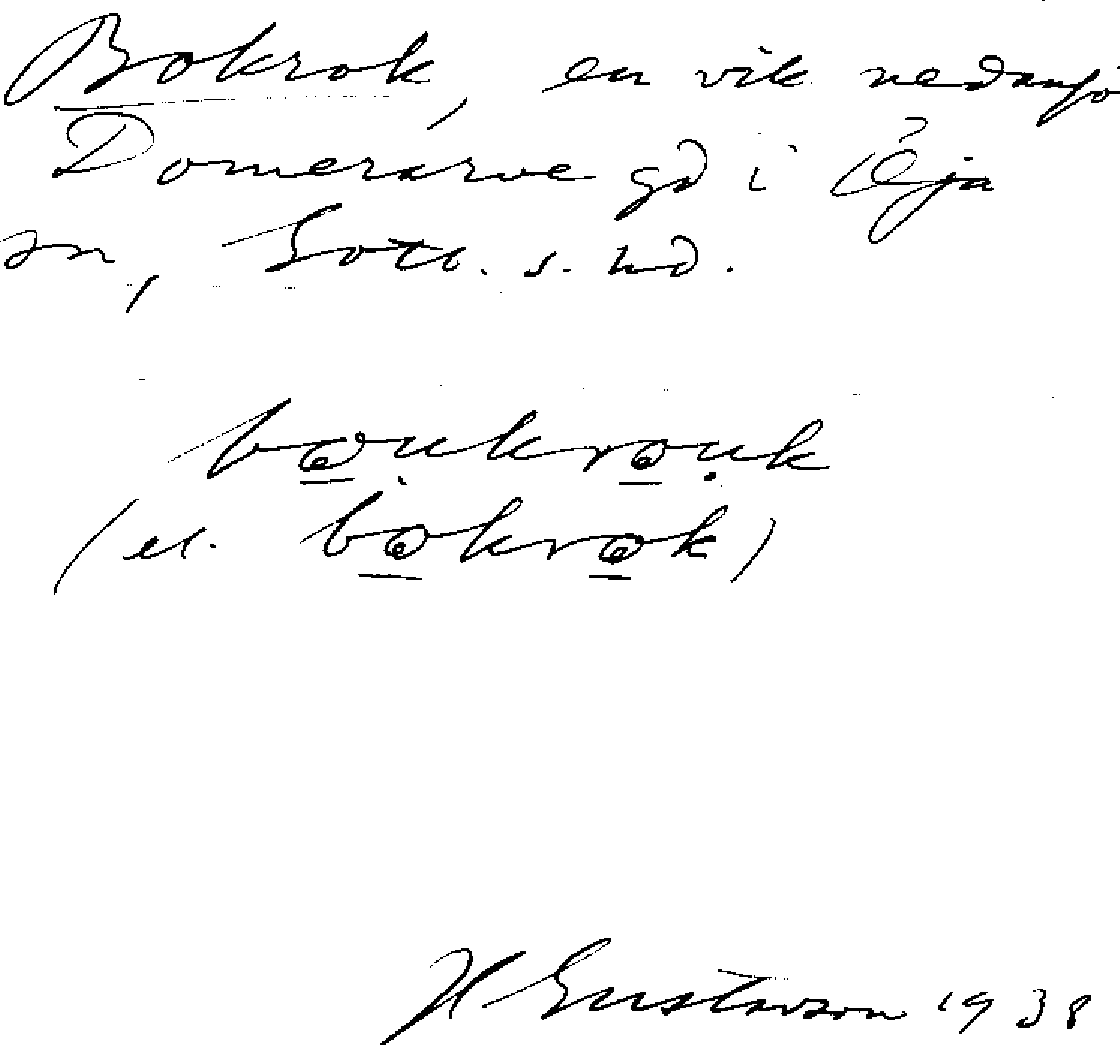 Bokrok, en vik nedanfö
Domerarve gd i Öja
sn, Gotl. s. hd.
bǫu̇krǫu̇k
(el. bǫkrǫk)
H Gustavson 1938